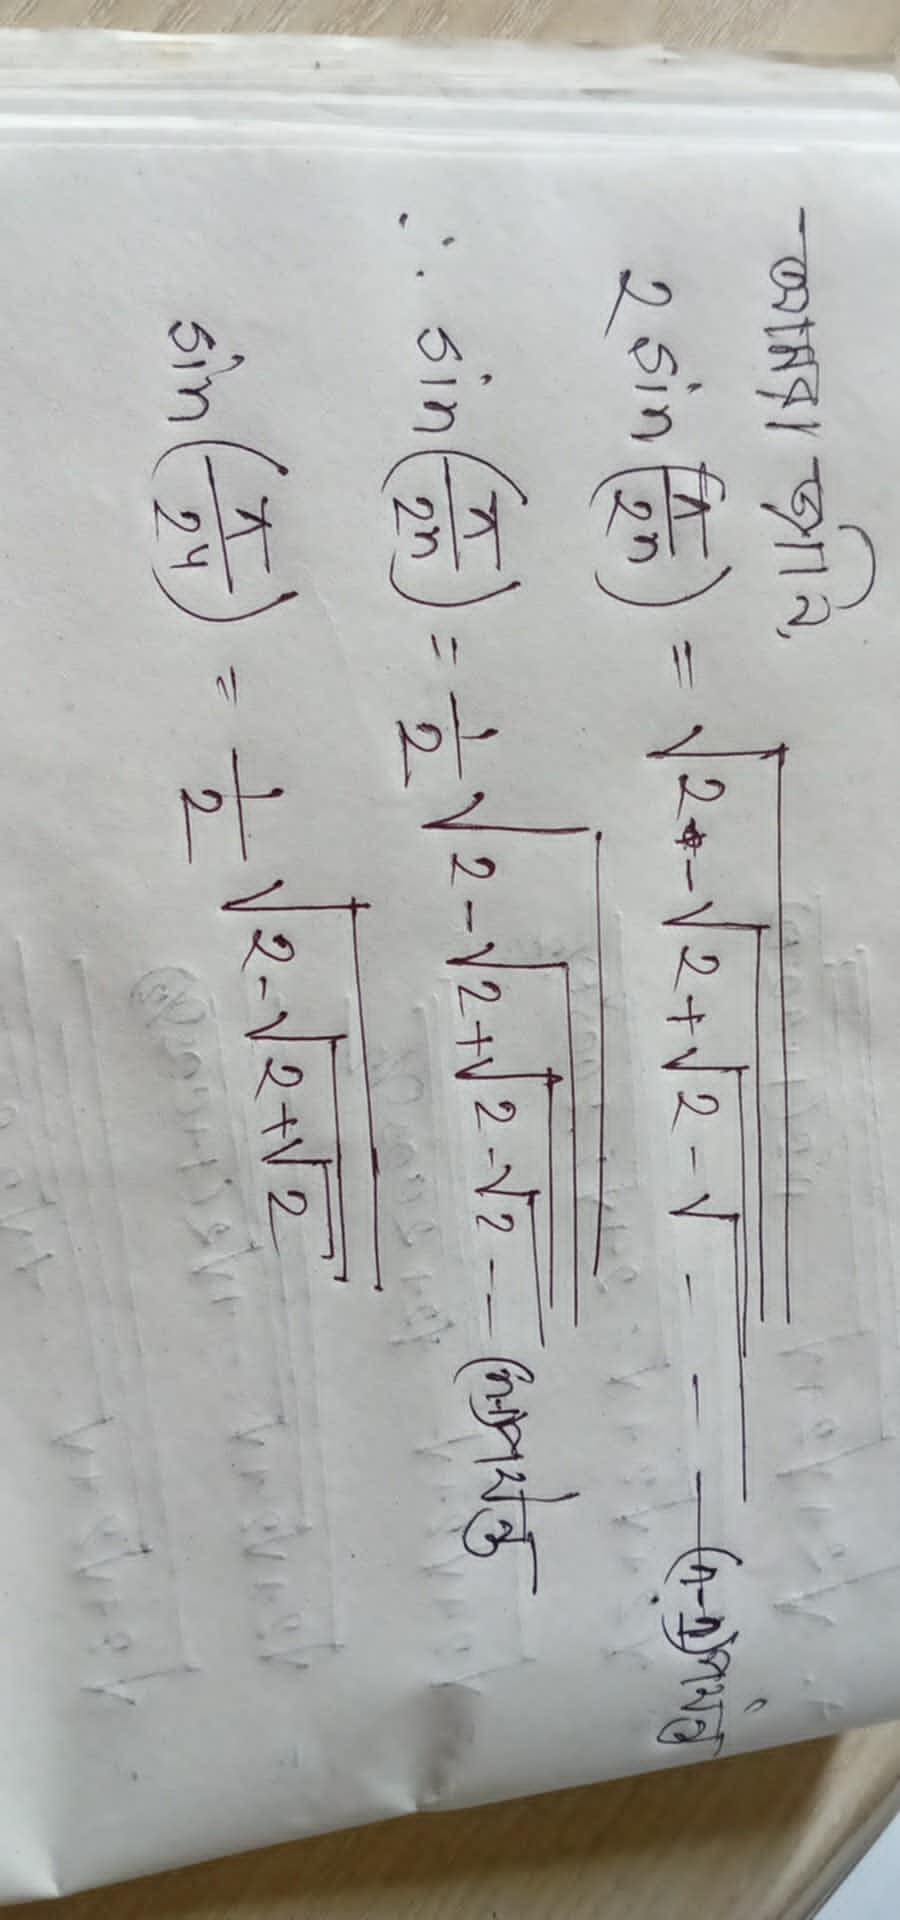 আমরা জানি,
2 sin(π/2n) = √2-√2+√2-√ - - - (n-1) পর্যন্ত
∴ sin(π/2n) = 1/2 √2-√2+√2-√2 - - (n-1) পর্যন্ত
sin(π/24) = 1/2 √2-√2+√2